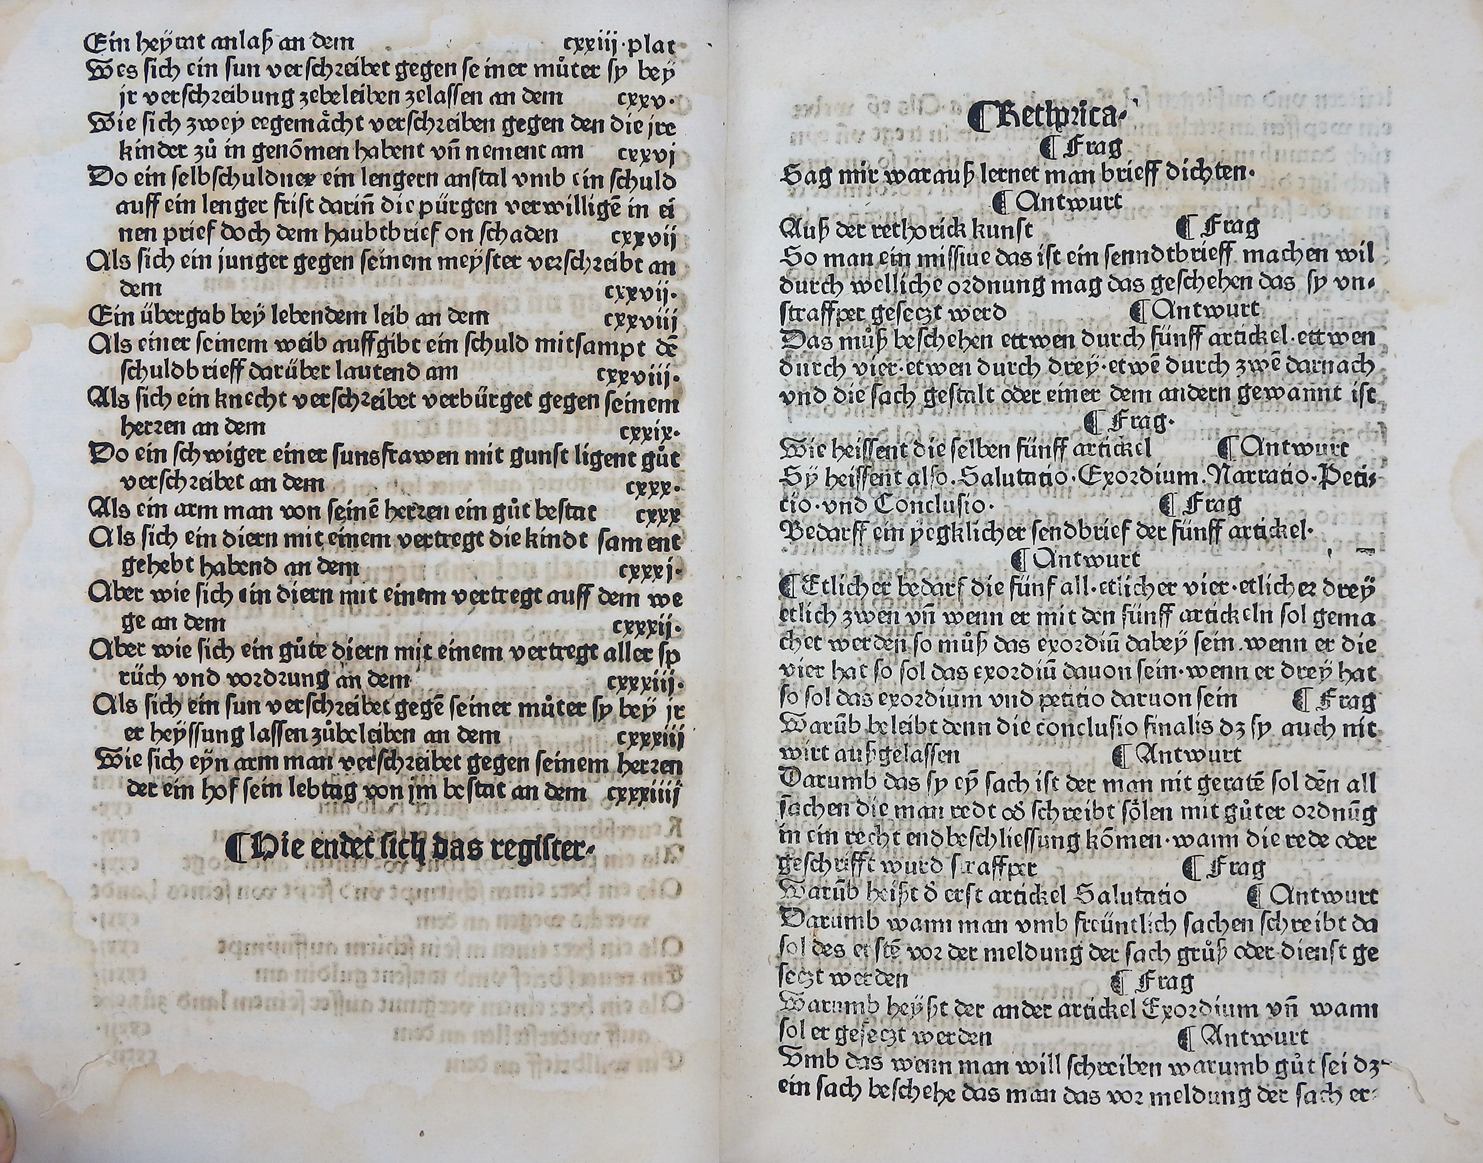 Ein heÿrat anlaß an dem cxxiij·plat
Wes sich ein sun verschreibet gegen seiner můter sy beÿ
jr verschreibung zebeleiben zelassen an dem cxxv·
Wie sich zweÿ eegemåcht verschreiben gegen den die jre
kinder zů in genōmen habent vn̄ nement am cxxvj
Do ein selbschuldner ein lengern anstal vmb ein schuld
auff ein lenger frist darin̄ die pürgen verwilligē in ei
nen prief doch dem haubtbrief on schaden cxxvij
Als sich ein junger gegen seinem meyster verschreibt an
dem cxxvij·
Ein übergab beÿ lebendem leib an dem cxxviij
Als einer seinem weib auffgibt ein schuld mitsampt dē
schuldbrieff darüber lautend am cxxviij·
Als sich ein knecht verschreibet verbürget gegen seinem
herren an dem cxxix·
Do ein schwiger einer sunsfrawen mit gunst ligent gůt
verschreibet an dem cxxx·
Als ein arm man von seinē herren ein gůt bestat cxxx
Als sich ein diern mit einem vertregt die kindt sam ent
gehebt habend an dem cxxxj·
Aber wie sich ein diern mit einem vertregt auff dem we
ge an dem cxxxij·
Aber wie sich ein gůte diern mit einem vertregt aller sp
rüch vnd vordrung an dem cxxxiij·
Als sich ein sun verschreibet gegē seiner můter sy beÿ jr
er heÿssung lassen zůbeleiben an dem cxxxiij
Wie sich eÿn arm man verschreibet gegen seinem herren
der ein hof sein lebtag von jm bestat an dem cxxxiiij
¶Hie endet sich das register·
¶Rethorica·
¶Frag
Sag mir warauß lernet man brieff dichten·
¶Antwurt
Auß der rethorick kunst ¶Frag
So man ein missiue das ist ein senndtbrieff machen wil
durch welliche ordnung mag das geschehen das sy vn-
straffper gesetzt werd ¶Antwurt
Das můß beschehen ettwen durch fünff artickel·ettwen
durch vier·etwen durch dreÿ·etwē durch zwē darnach
vnd die sach gestalt oder einer dem andern gewannt ist
¶Frag·
Wie heissent die selben fünff artickel ¶Antwurt
Sÿ heissent also·Salutatio·Exordium·Narratio·Peti-
tio·vnd Conclusio· ¶Frag
Bedarff ein yegklicher sendbrief der fünff artickel·
¶Antwurt
¶Etlicher bedarf die fünf all·etlicher vier·etlicher dreÿ
etlich zwen vn̄ wenn er mit den fünff artickeln sol gema
chet werden so můß das exordiū dabeÿ sein·wenn er die
vier hat so sol das exordiū dauon sein·wenn er dreÿ hat
so sol das exordium vnd petitio daruon sein ¶Frag
Warūb beleibt denn die conclusio finalis dz sy auch nit
wirt außgelassen ¶Antwurt
Darumb das sy eÿ sach ist der man nit geratē sol den all
sachen die man redt oď schreibt sölen mit gůter ordnūg
in ein recht endbeschliessung kōmen·wann die rede oder
geschrifft wurd straffper ¶Frag
Warūb heißt ď erst artickel Salutatio ¶Antwurt
Darumb wann man vmb freüntlich sachen schreibt da
sol des erstē vor der meldung der sach grůß oder dienst ge
setzt werden ¶Frag
Warumb heÿßt der ander artickel Exordium vn̄ wann
sol er gesetzt werden ¶Antwurt
Vmb das wenn man will schreiben warumb gůt sei dz
ein sach beschehe das man das vor meldung der sach er-